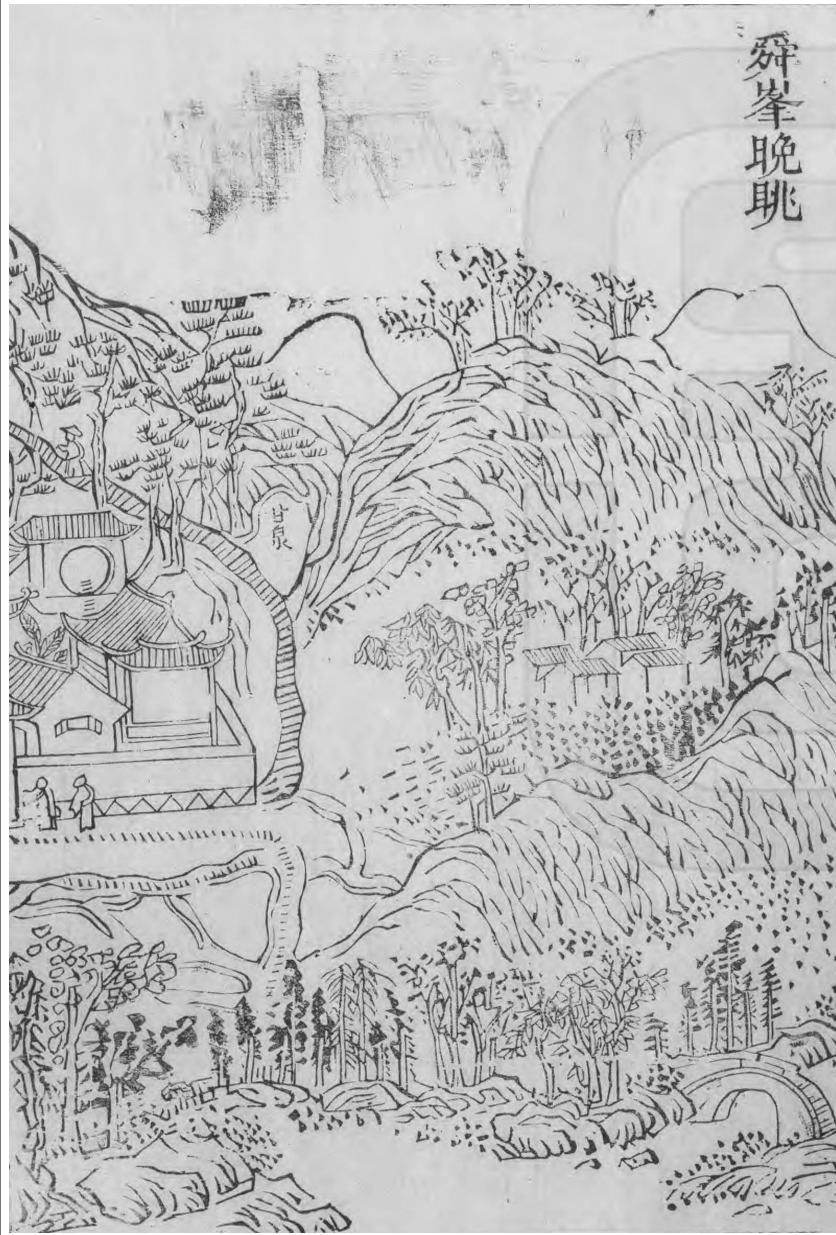 舜峯晚眺
甘泉